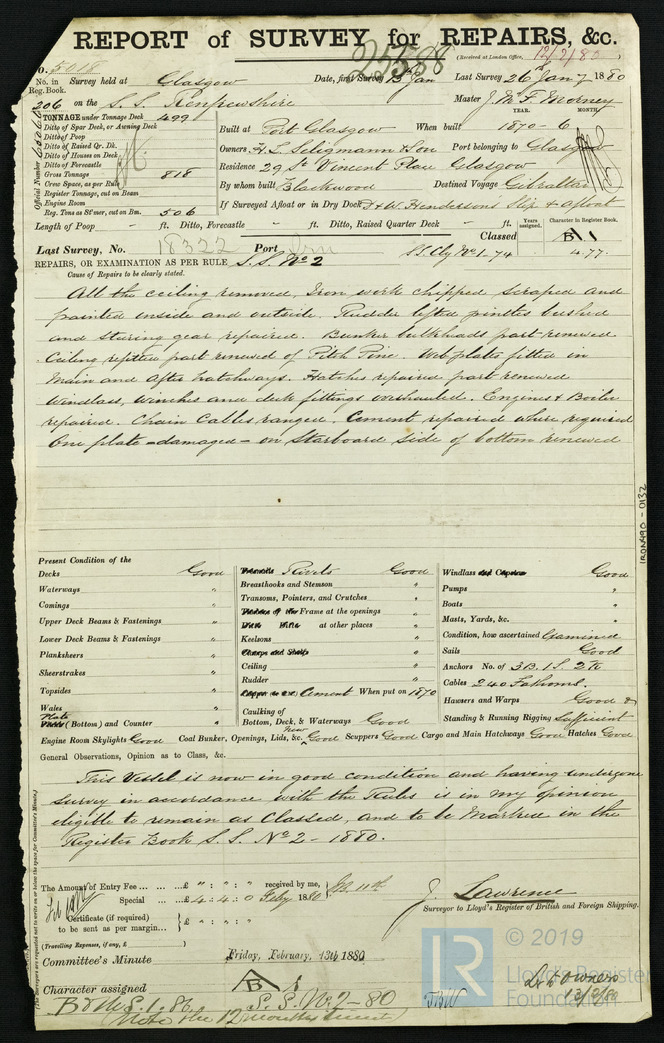 REPORT of SURVEY for REPAIRS, &c.
25588
(Received at London Office, 12/2/80)
No. 5018
No. in Reg. Book. Survey held at Glasgow Date, first Survey 13th Jan Last Survey 26 Jany 1880
206 on the S.S. Renfrewshire Master
YEAR. MONTH.
TONNAGE under Tonnage Deck 499
Ditto of Spar Deck, or Awning Deck
Ditto of Poop
Ditto of Raised Qr. Dk.
Ditto of Houses on Deck
Ditto of Forecastle
Gross Tonnage 818
Crew Space, as per Rule
Register Tonnage, cut on Beam
Engine Room
Reg. Tons as St'mer, cut on Bm. 506
Official Number
Built at Port Glasgow When built 1870 - 6
Owners H. L. Seligmann & Son Port belonging to Glasgow
Residence 29 St Vincent Place Glasgow
By whom built Blackwood Destined Voyage Gibraltar
If Surveyed Afloat or in Dry Dock D & W. Henderson's Slip & afloat
Length of Poop - ft. Ditto, Forecastle - ft. Ditto, Raised Quarter Deck - ft.
Years assigned. Character in Register Book.
Classed A 1
Last Survey, No. 18322 Port
S.S. Cly No 1. 74 4.77.
REPAIRS, OR EXAMINATION AS PER RULE S.S. No 2
Cause of Repairs to be clearly stated.
All the ceiling removed, Iron work chipped scraped and
painted inside and outside. Rudder lifted pintles bushed
and steering gear repaired. Bunker bulkheads part renewed
Ceiling refitted part renewed of Pitch Pine. Web plates fitted in
Main and After hatchways. Hatches repaired part renewed
Windlass, winches and deck fittings overhauled. Engines & Boiler
repaired. Chain Cables ranged. Cement repaired where required
One plate - damaged - on Starboard side of bottom renewed
IRON490-0132
Present Condition of the
Decks Good
Waterways "
Comings "
Upper Deck Beams & Fastenings "
Lower Deck Beams & Fastenings "
Planksheers "
Sheerstrakes "
Topsides "
Wales "
Plate (Bottom) and Counter "
Rivets Good
Breasthooks and Stemson "
Transoms, Pointers, and Crutches "
Frame at the openings "
at other places "
Keelsons "
Ceiling "
Rudder "
Cement When put on 1870
Caulking of
Bottom, Deck, & Waterways Good
Windlass Good
Pumps "
Boats "
Masts, Yards, &c. "
Condition, how ascertained Examined
Sails Good
Anchors No. of 3 B. 1 S. 2 K
Cables 240 Fathoms.
Hawsers and Warps Good &
Standing & Running Rigging Sufficient
Engine Room Skylights Good Coal Bunker, Openings, Lids, &c. New Good Scuppers Good Cargo and Main Hatchways Good Hatches Good
General Observations, Opinion as to Class, &c.
This Vessel is now in good condition and having undergone
survey in accordance with the Rules is in my opinion
eligible to remain as Classed, and to be Marked in the
Register Book S.S. No 2 - 1880.
The Amount of Entry Fee ... £ " : " : " received by me,
Special ... £ 4 : 4 : 0 Feby 1880
Certificate (if required) £ " : " : "
to be sent as per margin...
(Travelling Expenses, if any, £ )
J. Lawrence
Surveyor to Lloyd's Register of British and Foreign Shipping.
Committee's Minute Friday, February, 13th 1880
Character assigned A 1
S.S. No 2 - 80
(Note the 12 months limit)
(The Surveyors are requested not to write on or below the space for Committee's Minute.)
13/2/80
LR © 2019
Lloyd's Register
Foundation